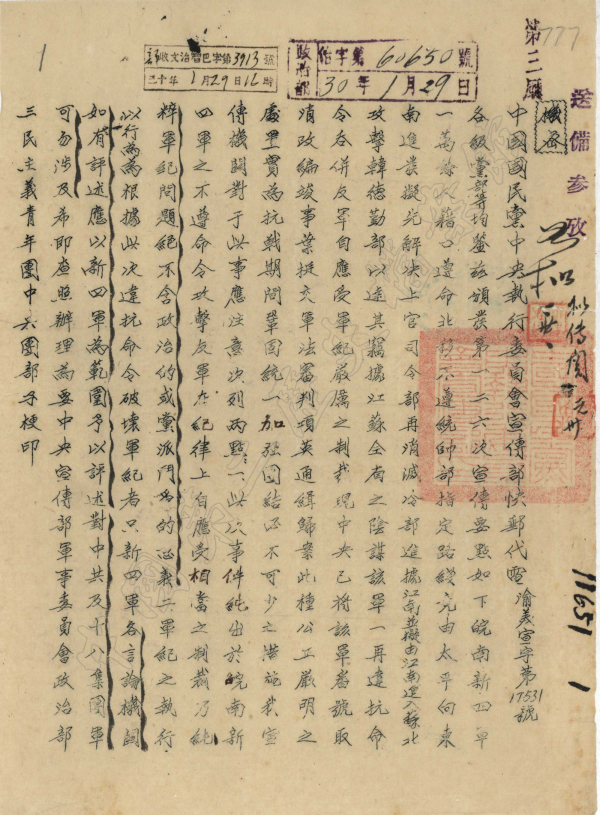 777
第三廳
送備參攷
機密
11651
1
政治部
治字第60650號
30年1月29日
收文治習巴字第3913號
三十年1月29日16時
1
中國國民黨中央執行委員會宣傳部快郵代電 渝義宣字第17531號
各級黨部等均鑒茲頒發第一二六次宣傳要點如下皖南新四軍
一萬餘人藉口遵命北移不遵統帥部指定路綫竟由太平向東
南進發擬先解決上官司令部再消滅冷部進據江南並擬由江南進入蘇北
攻擊韓德勤部以達其竊據江蘇全省之陰謀該軍一再違抗命
令吞併友軍自應受軍紀嚴厲之制裁現中央已將該軍番號取
消改編竣事葉挺交軍法審判項英通緝歸案此種公正嚴明之
處置實為抗戰期間鞏固統一加强團結必不可少之措施我宣
傳機關對于此事應注意次列兩點：一、此次事件純出於皖南新
四軍之不遵命令攻擊友軍在紀律上自應受相當之制裁乃純
粹軍紀問題絕不含政治的或黨派鬥爭的意義二軍紀之執行
以行為為根據此次違抗命令破壞軍紀者只新四軍各言論機關
如有評述應以新四軍為範圍予以評述對中共及十八集團軍
可勿涉及希即查照辦理為要中央宣傳部軍事委員會政治部
三民主義青年團中央團部子梗印